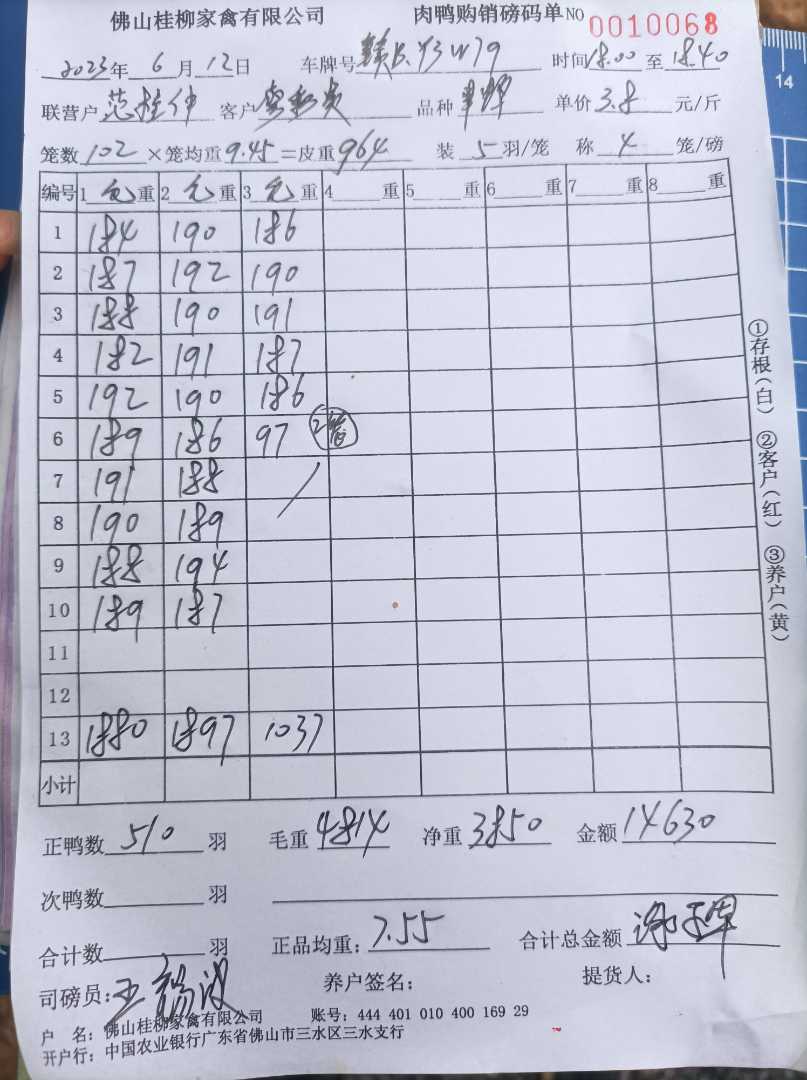 佛山桂柳家禽有限公司 肉鸭购销磅码单NO 0010068
2023年 6 月 12 日 车牌号 赣B.Y3W79 时间 18.00 至 18.40
联营户 范桂仲 客户 品种 单价 3.8 元/斤
笼数 102 ×笼均重 9.45 =皮重 964 装 5 羽/笼 称 4 笼/磅
编号 1 重 2 重 3 重 4 重 5 重 6 重 7 重 8 重
1 184 190 186
2 187 192 190
3 188 190 191
4 182 191 187
5 192 190 186
6 189 186 97 2笼
7 191 188
8 190 189
9 188 194
10 189 187
11
12
13 1880 1897 1037
小计
正鸭数 510 羽 毛重 4814 净重 3850 金额 14630
次鸭数 羽
合计数 羽 正品均重: 7.55 合计总金额
司磅员: 王 养户签名: 提货人:
户 名: 佛山桂柳家禽有限公司 账号: 444 401 010 400 169 29
开户行: 中国农业银行广东省佛山市三水区三水支行
①存根(白) ②客户(红) ③养户(黄)
14